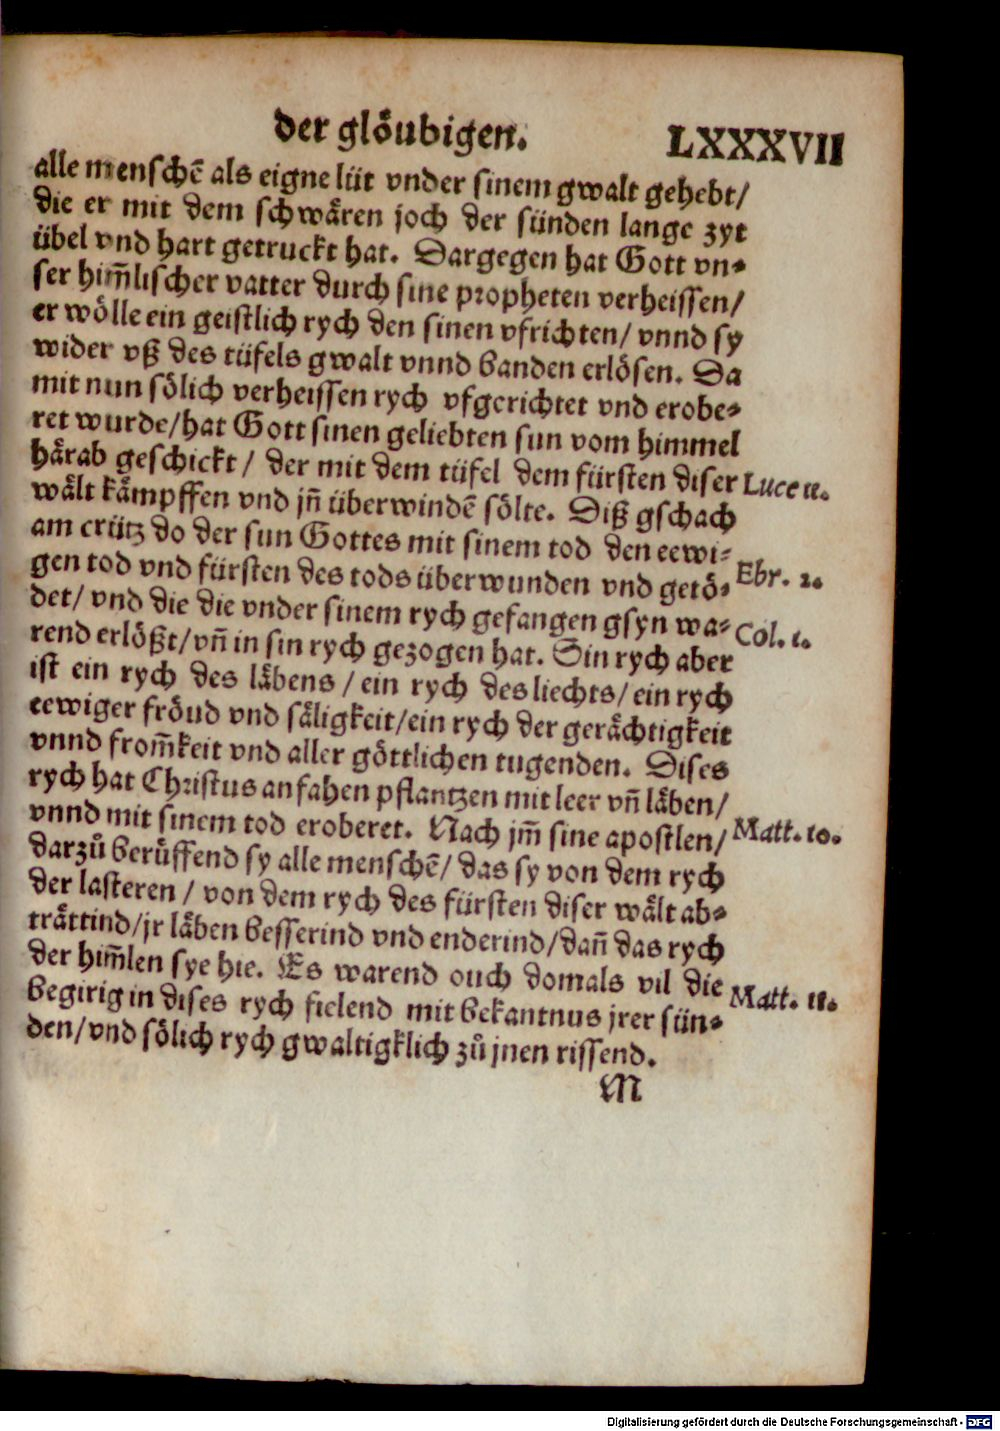 der glöubigen. LXXXVII
alle menschē als eigne lüt vnder sinem gwalt gehebt/
die er mit dem schwären joch der sünden lange zyt
übel vnd hart getruckt hat. Dargegen hat Gott vn-
ser him̄lischer vatter durch sine propheten verheissen/
er wölle ein geistlich rych den sinen vfrichten/ vnnd sy
wider vß des tüfels gwalt vnnd banden erlösen. Da
mit nun sölich verheissen rych vfgerichtet vnd erobe-
ret wurde/hat Gott sinen geliebten sun vom himmel
härab geschickt/ der mit dem tüfel dem fürsten diser
Luce 11.
wält kämpffen vnd jn̄ überwindē sölte. Diß gschach
am crütz do der sun Gottes mit sinem tod den eewi-
gen tod vnd fürsten des tods überwunden vnd getö-
Ebr. 2.
det/ vnd die die vnder sinem rych gefangen gsyn wa-
Col. 1.
rend erlößt/vn̄ in sin rych gezogen hat. Sin rych aber
ist ein rych des läbens/ein rych des liechts/ein rych
eewiger fröud vnd säligkeit/ein rych der gerächtigkeit
vnnd from̄keit vnd aller göttlichen tugenden. Dises
rych hat Christus anfahen pflantzen mit leer vn̄ läben/
vnnd mit sinem tod eroberet. Nach jm̄ sine apostlen/
Matt. 10.
darzů berüffend sy alle menschē/ das sy von dem rych
der lasteren/ von dem rych des fürsten diser wält ab-
trättind/jr läben besserind vnd enderind/dan̄ das rych
der him̄len sye hie. Es warend ouch domals vil die
Matt. 11.
begirig in dises rych fielend mit bekantnus jrer sün-
den/vnd sölich rych gwaltigklich zů jnen rissend.
M
Digitalisierung gefördert durch die Deutsche Forschungsgemeinschaft - DFG